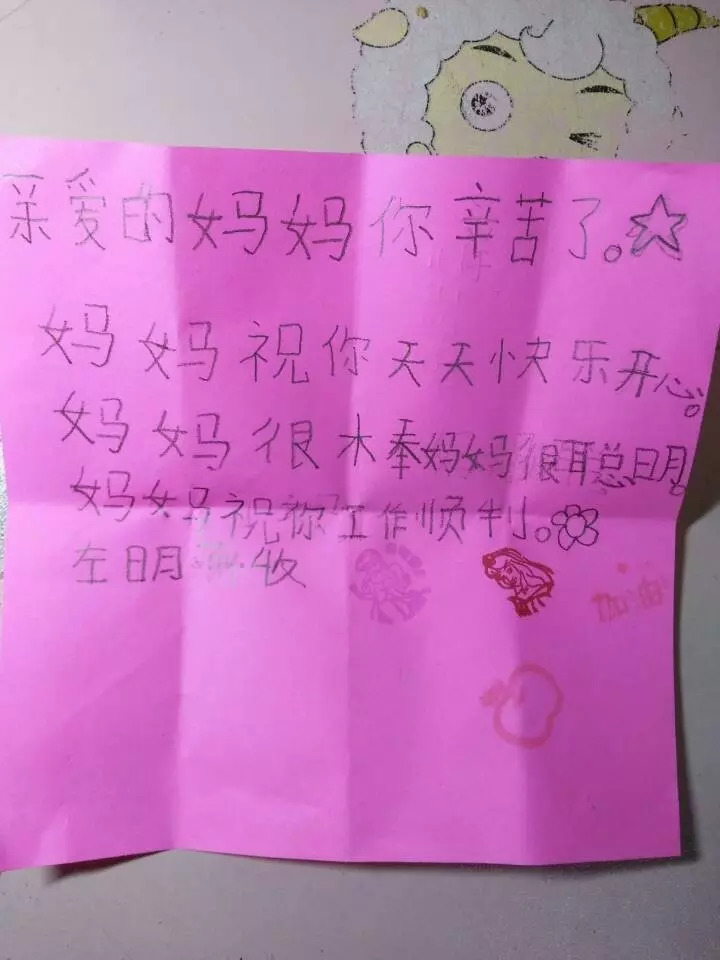 亲爱的妈妈你辛苦了。
妈妈祝你天天快乐开心。
妈妈很木奉妈妈很耳总明。
妈妈祝你工作顺利。
左明 收